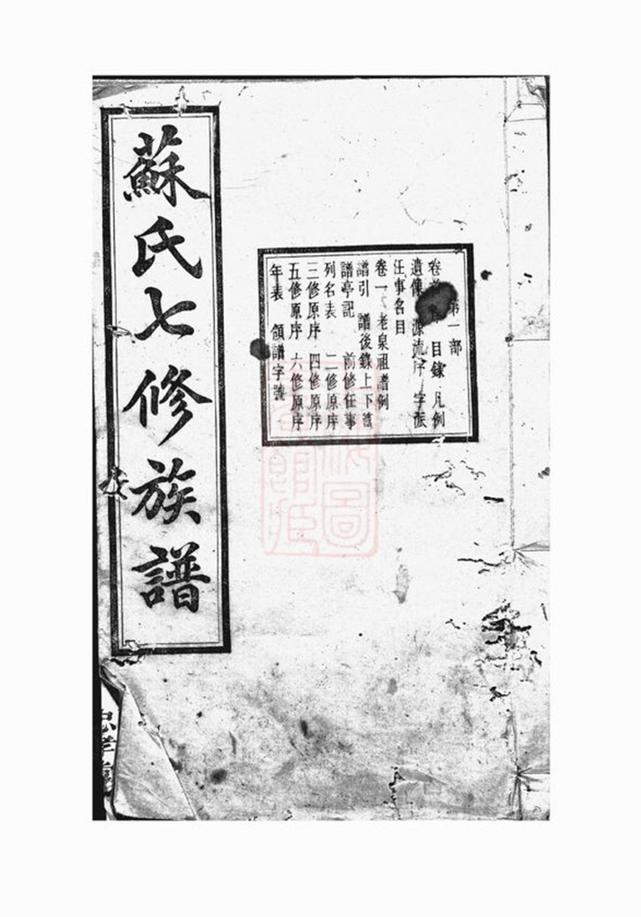 第一部
卷 目錄 凡例
遺像 源流序 字派
任事名目
卷一 老泉祖譜例
譜引 譜後錄上下篇
譜亭記 前修任事
列名表 二修原序
三修原序 四修原序
五修原序 六修原序
年表 領譜字號
蘇氏七修族譜